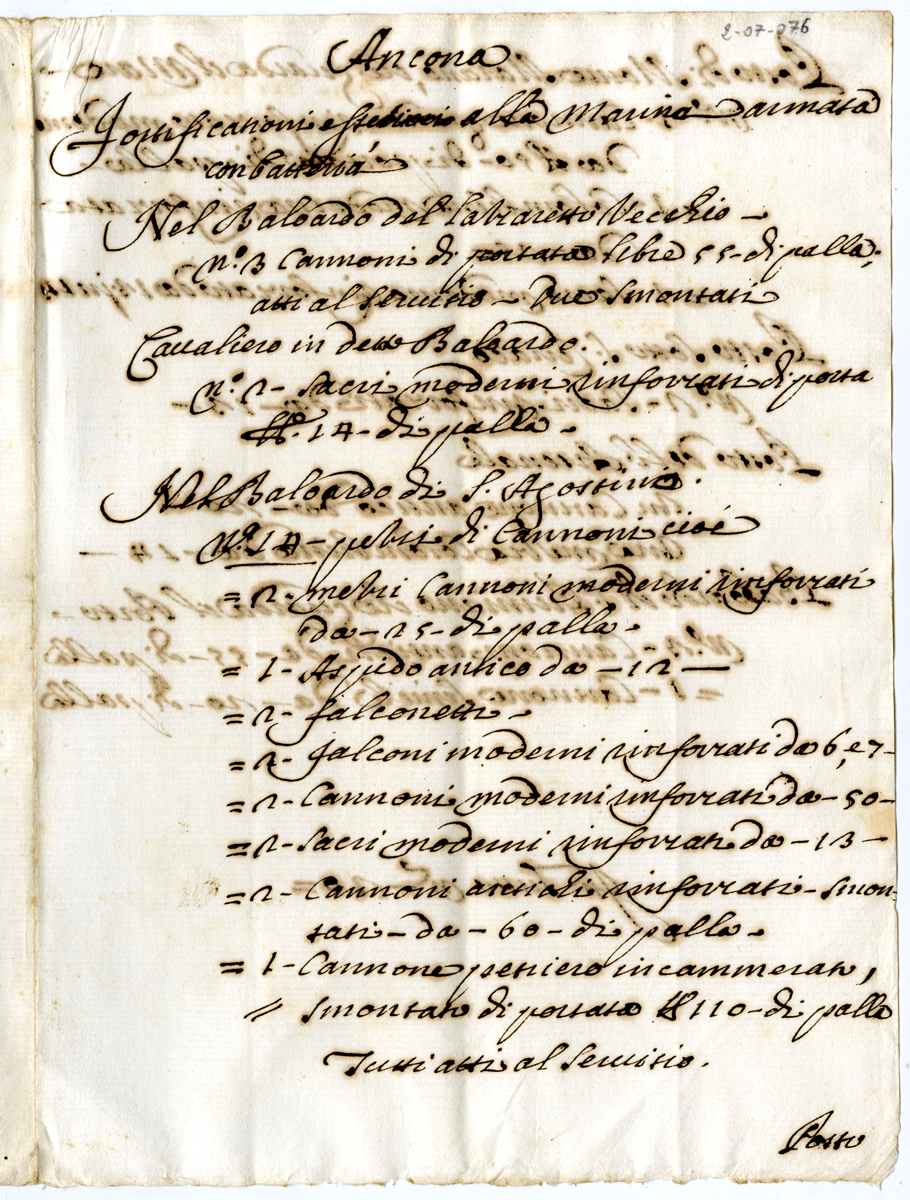 2-07-076
Ancona
Fortificationi esteriori alla Marina armata
con batteria
Nel Baloardo del Lazaretto Vecchio -
n.º 3 Cannoni di portata libre 55 - di palla,
atti al servitio - Due smontati
Cavaliero in detto Baloardo.
n.º 2 - sacri moderni rinforzati di porta
14 - di palla.
Nel Baloardo di S. Agostino.
N.º 14 - pezzi di Cannoni cioé
= 2 - mezzi Cannoni moderni rinforzati
da - 25 - di palla.
= 1 - Aspido antico da - 12 -
= 2 - falconetti -
= 2 - falconi moderni rinforzati da 6, e 7 -
= 2 - Cannoni moderni rinforzati da - 50 -
= 2 - sacri moderni rinforzati da - 13 -
= 2 - Cannoni antichi rinforzati - smon-
tati - da - 60 - di palla.
= 1 - Cannone petriero incammerato,
" smontato di portata ℔ 110 - di palla
Tutti atti al servitio.
Posto